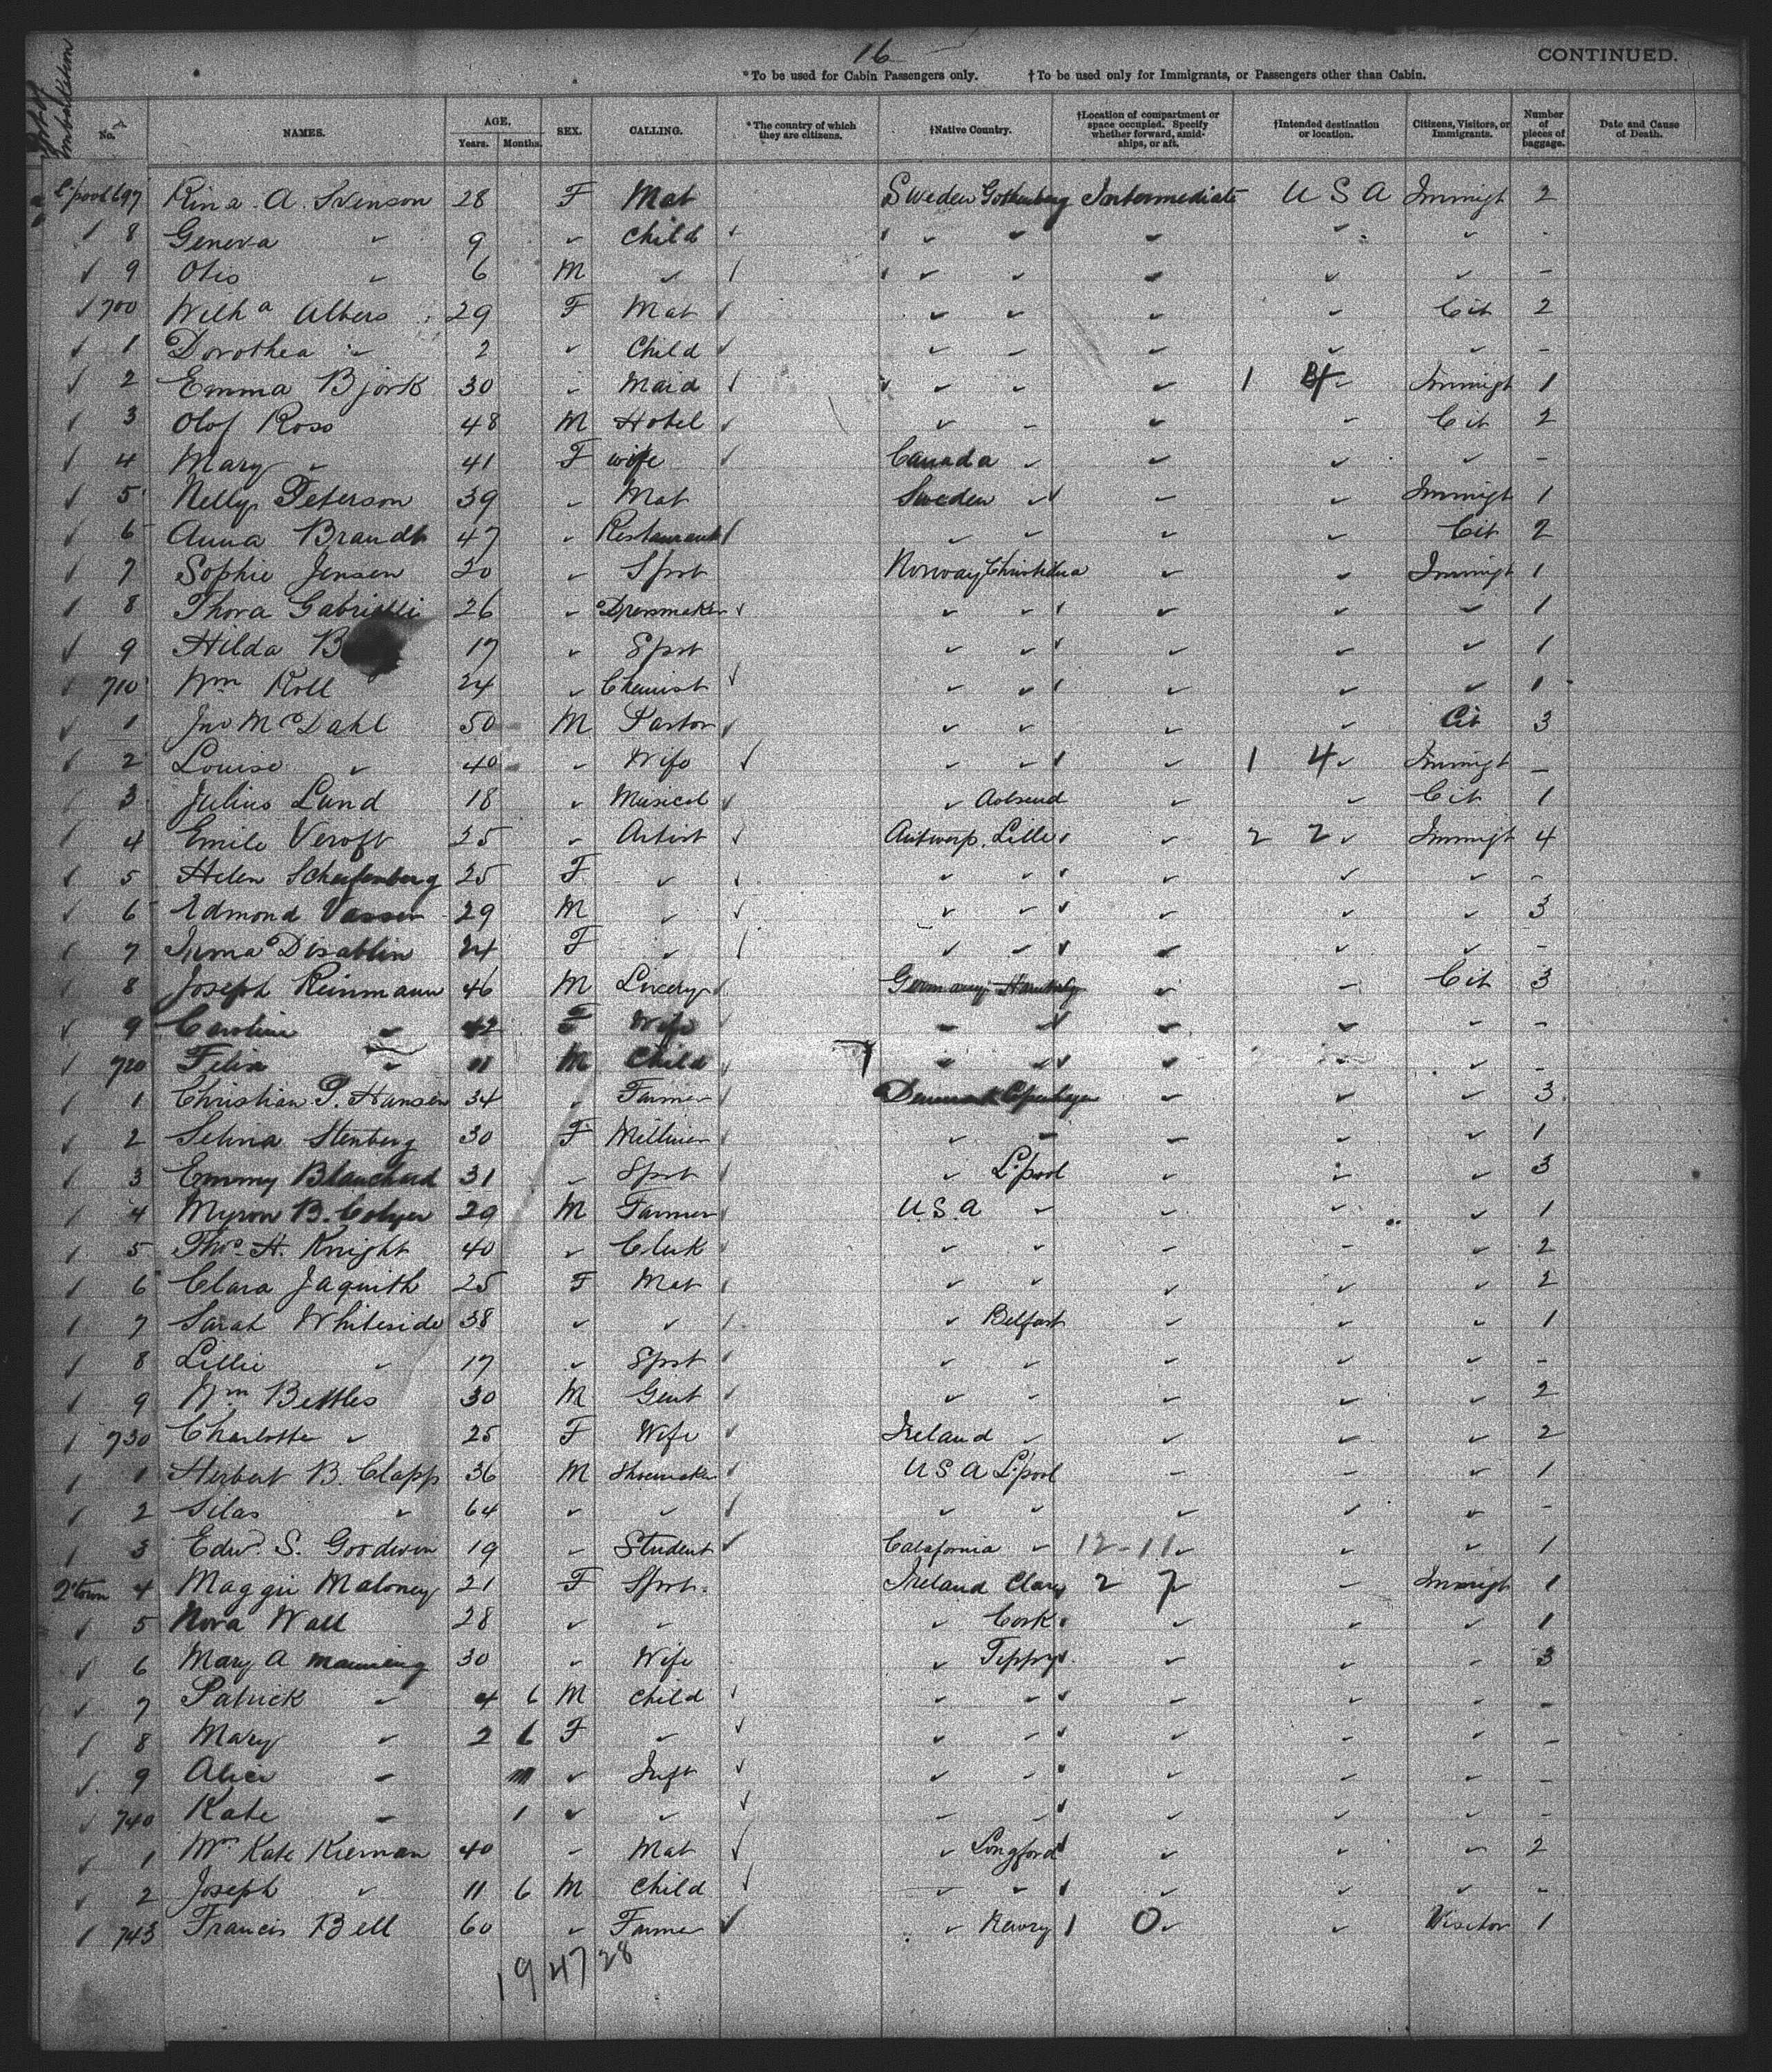 16
CONTINUED.
*To be used for Cabin Passengers only. †To be used only for Immigrants, or Passengers other than Cabin.
Port of Embarkation No. NAMES. AGE. Years. Months. SEX. CALLING. *The country of which they are citizens. †Native Country. †Location of compartment or space occupied. Specify whether forward, amidships, or aft. †Intended destination or location. Citizens, Visitors, or Immigrants. Number of pieces of baggage. Date and Cause of Death.
L'pool 697 A. 28 F Mat Sweden Gothenburg Intermediate U S A Immigt 2
8 Geneva " 9 " Child " " " " " -
9 " 6 M " " " " " " -
700 Wilh a Albers 29 F Mat " " " " Cit 2
1 Dorothea " 2 " Child " " " " " -
2 Emma Bjork 30 " Maid " " " 1 " Immigt 1
3 Olof Ross 48 M Hotel " " " " Cit 2
4 Mary " 41 F wife Canada " " " " -
5 Nelly Peterson 39 " Mat Sweden " " " Immigt 1
6 Anna Brandt 47 " Restaurant " " " " Cit 2
7 Sophie Jensen " Spst Norway Christiania " " Immigt 1
8 Thora 26 " Dressmaker " " " " " 1
9 Hilda B 17 " Spst " " " " " 1
710 Wm Roll 24 " Chemist " " " " " 1
1 Jno Mc Dahl 50 M Pastor " " " " Cit 3
2 Louise " 40 " Wife " " " 1 4 " Immigt -
3 Julius Lund 18 " Musical " " " Cit 1
4 Emile 25 " Artist Antwerp. Lille " 2 2 " Immigt 4
5 Helen 25 F " " " " " " -
6 Edmond 29 M " " " " " " 3
7 Irma 24 F " " " " " " -
8 Joseph Reinmann 46 M Germany " " Cit 3
9 Caroline " 42 F Wife " " " " " -
720 Felix " 11 M Child " " " " " -
1 Christian P. Hansen 34 " Farmer Denmark Copenhagen " " " 3
2 Selma Stenberg 30 F Milliner " " " " " 1
3 Emmy Blanchard 31 " Spst " L'pool " " " 3
4 Myron B. Colyer 29 M Farmer U.S.A " " " " 1
5 Thos H. Knight 40 " Clerk " " " " " 2
6 Clara Jaquith 25 F Mat " " " " " 2
7 Sarah Whiteside 38 " " " Belfast " " " 1
8 Lillie " 17 " Spst " " " " " -
9 Wm Bettles 30 M Gent " " " " " 2
730 Charlotte " 25 F Wife Ireland " " " " 2
1 Herbert B. Clapp 36 M Shoemaker U S A L'pool " " " 1
2 Silas " 64 " " " " " " " -
3 Edw. S. Goodwin 19 " Student California " 12-11 " " " 1
Q'town 4 Maggie Maloney 21 F Spst. Ireland Clare 2 7 " Immigt 1
5 Nora Wall 28 " " " Cork " " " 1
6 Mary A Manning 30 " Wife " Tippy " " " 3
7 Patrick " 4 6 M Child " " " " " -
8 Mary " 2 6 F " " " " " " -
9 Alice " " Inft " " " " " -
740 Kate " 1 " " " " " " " -
1 Mrs Kate Kiernan 40 " Mat " Longford " " " 2
2 Joseph " 11 6 M Child " " " " " -
743 Francis Bell 60 " Farmer " Newry 1 0 " " Visitor 1
19 47 28